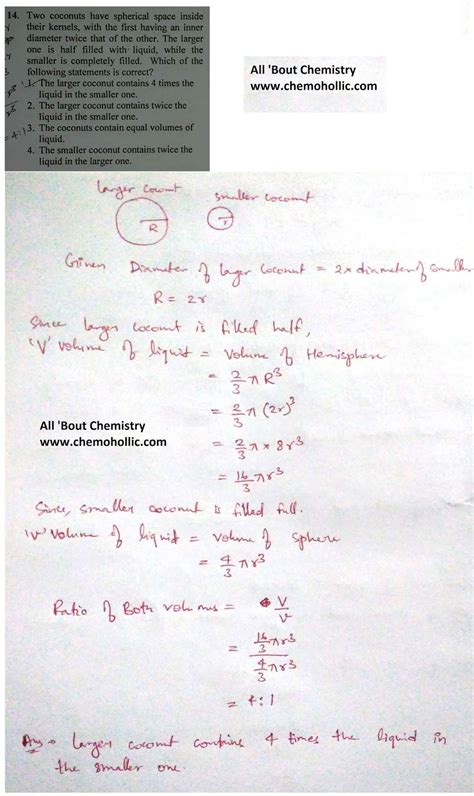 14. Two coconuts have spherical space inside
their kernels, with the first having an inner
diameter twice that of the other. The larger
one is half filled with liquid, while the
smaller is completely filled. Which of the
following statements is correct?
1. The larger coconut contains 4 times the
liquid in the smaller one.
2. The larger coconut contains twice the
liquid in the smaller one.
= 4:1
3. The coconuts contain equal volumes of
liquid.
4. The smaller coconut contains twice the
liquid in the larger one.
All 'Bout Chemistry
www.chemohollic.com
larger coconut
smaller coconut
R
r
Given Diameter of lager coconut = 2 x diameter of smaller
R = 2r
Since larger coconut is filled half,
'V' volume of liquid = Volume of Hemisphere
= 2/3 π R³
= 2/3 π (2r)³
All 'Bout Chemistry
www.chemohollic.com
= 2/3 π × 8r³
= 16/3 πr³
Since, smaller coconut is filled full.
'v' volume of liquid = volume of sphere
= 4/3 πr³
Ratio of Both volums = V/v
= 16/3 πr³ / 4/3 πr³
= 4:1
Ans Larger coconut contains 4 times the liquid in
the smaller one.